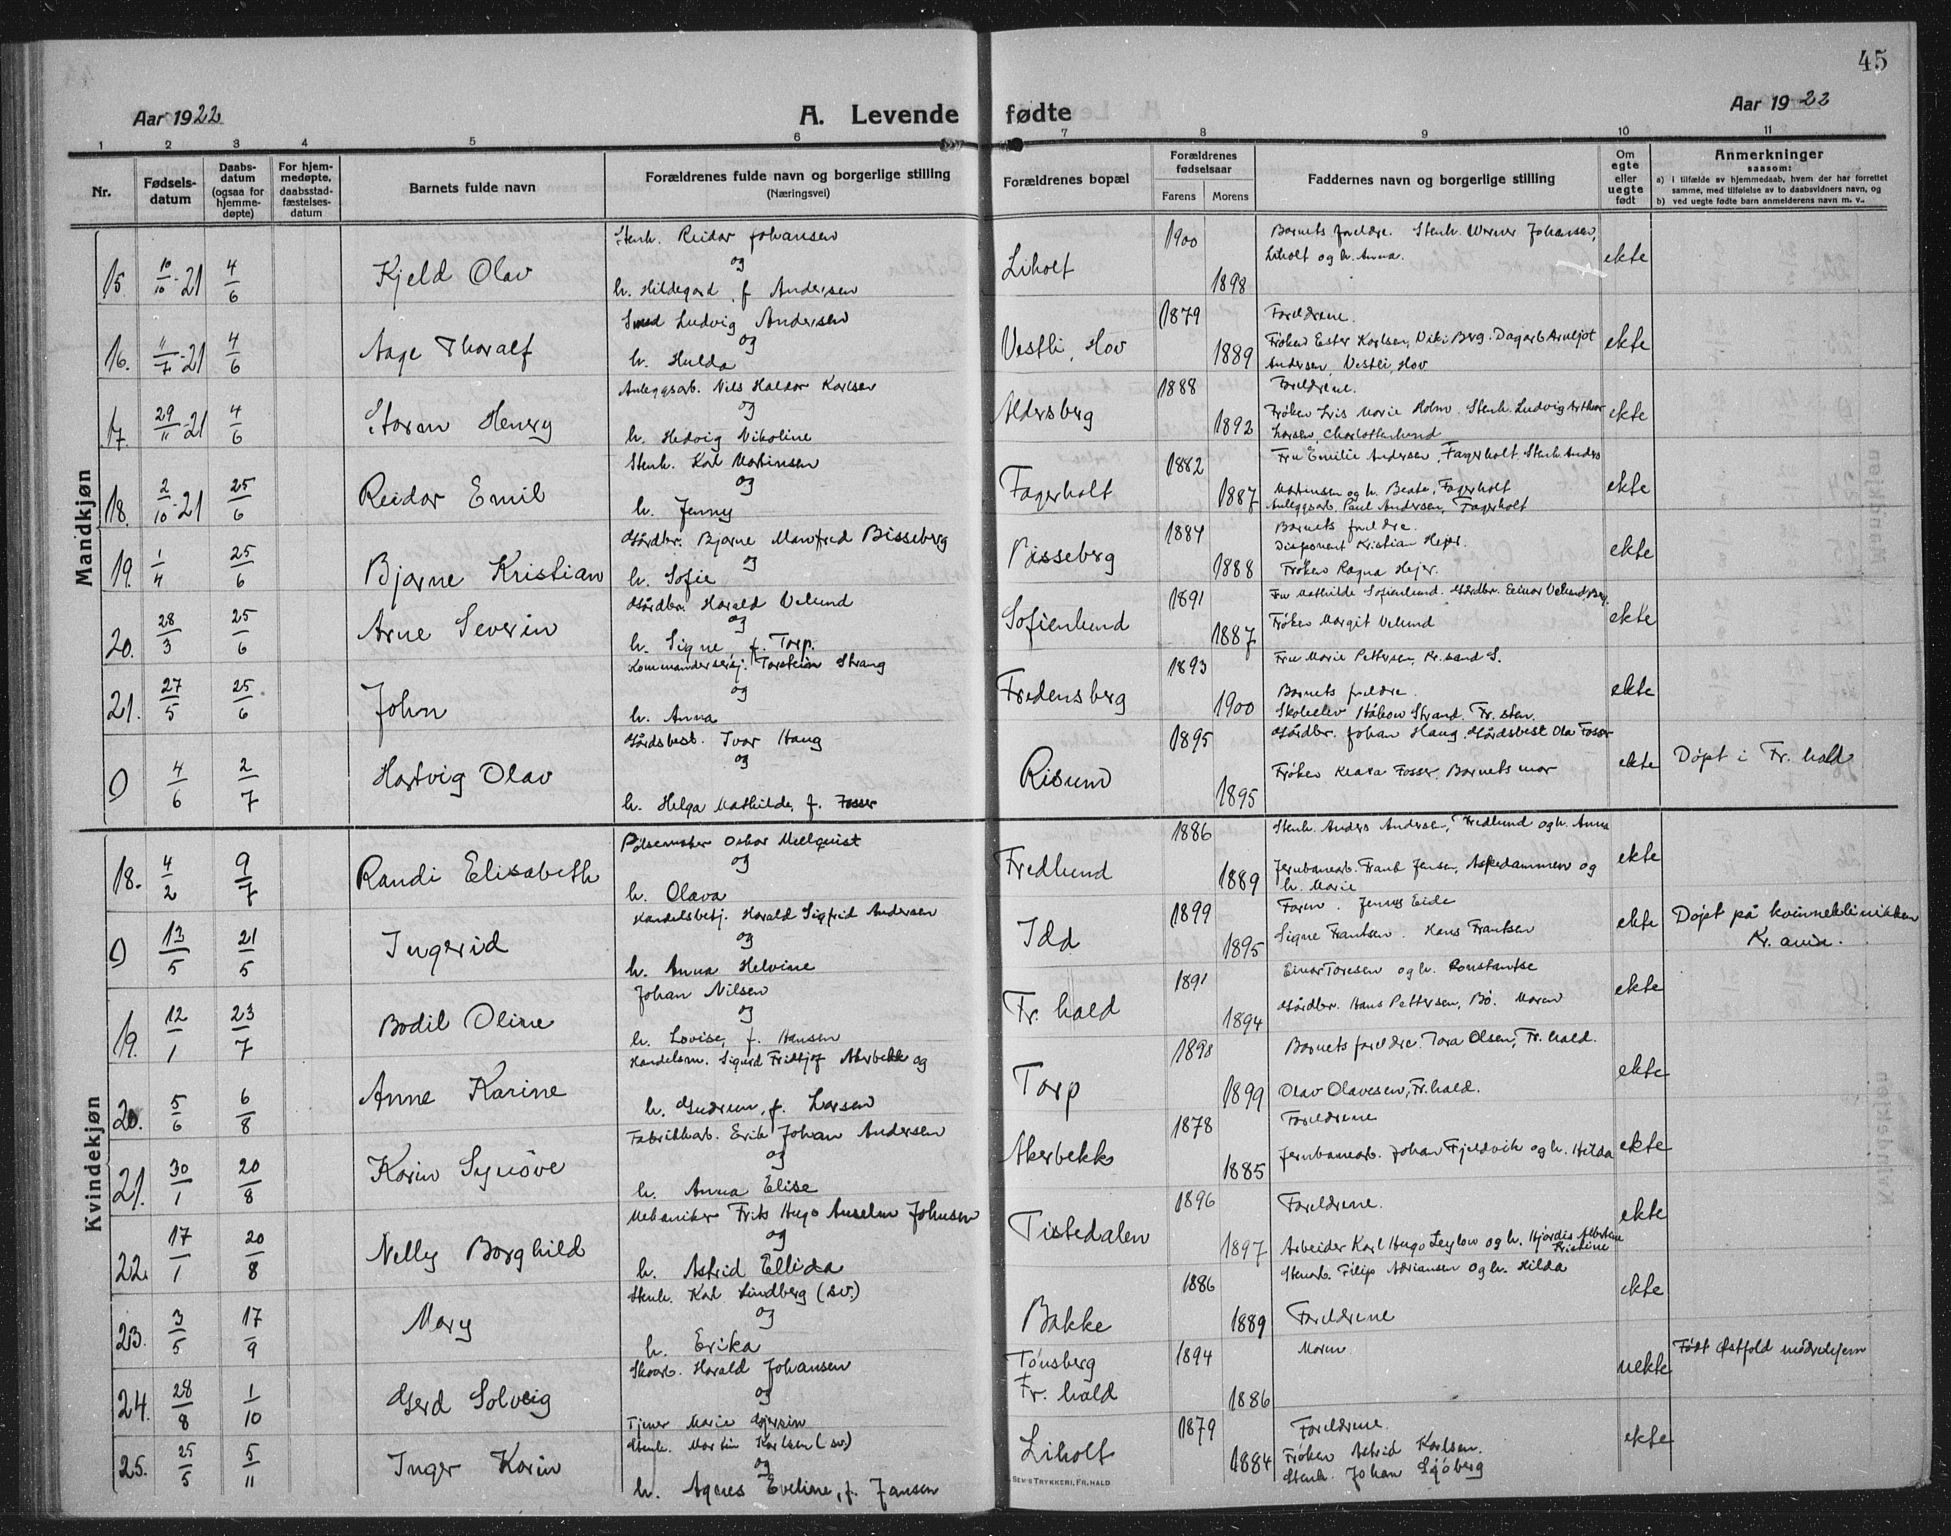 45
Aar 1922
A. Levende fødte
Aar 1922
1 2 3 4 5 6 7 8 9 10 11
Nr.
Fødsels-datum
Daabs-datum (ogsaa for hjemme-døpte)
For hjem-medøpte, daabsstad-fæstelses-datum
Barnets fulde navn
Forældrenes fulde navn og borgerlige stilling (Næringsvei)
Forældrenes bopæl
Forældrenes fødselsaar
Farens Morens
Faddernes navn og borgerlige stilling
Om egte eller uegte født
Anmerkninger saasom:
a) i tilfælde av hjemmedaab, hvem der har forrettet samme, med tilføielse av to daabsvidners navn, og
b) ved uegte fødte barn anmelderens navn m. v..
Mandkjøn
15. 10/10-21 4/6 Kjeld Olav
Stenh. Reidar Johansen
og
h. Hildegard f. Andersen
Liholt 1900 1898
Barnets foreldre. Stenh. Werner Johansen,
Liholt og h. Anna.
ekte
16. 11/7-21 4/6 Aage Thoralf
Smed Ludvig Andersen
og
h. Hulda
Vestli, Hov 1879 1889
Foreldrene.
Frøken Ester Karlsen, Berg. Dagarb. Arneljot
Andersen, Vestli, Hov
ekte
17. 29/11-21 4/6 Henry
Anleggsarb. Nils Haldor Karlsen
og
h. Hedvig Nikoline
Aldersberg 1888 1892
Foreldrene.
Frøken Marie Holm. Stenh. Ludvig Arthur
Larsen, Charlottenlund
ekte
18. 2/10-21 25/6 Reidar Emil
Stenh. Karl Martinsen
og
h. Jenny
Fagerholt 1882 1887
Fru Emilie Andersen, Fagerholt. Stenh. Anders
Martinsen og h. Beate, Fagerholt
Anleggsarb. Paul Andersen, Fagerholt
ekte
19. 1/4 25/6 Bjarne Kristian
Gårdbr. Bjarne Manfred Bisseberg
og
h. Sofie
Bisseberg 1884 1888
Barnets foreldre.
Disponent Kristian Hejer.
Frøken Ragna Hejer.
ekte
20. 28/3 25/6 Arne Severin
Gårdbr. Harald Velund
og
h. Signe f. Torp.
Sofienlund 1891 1887
Fru Mathilde Sofienlund. Gårdbr. Einar Velund, Berg.
Frøken Margit Velund
ekte
21. 27/5 25/6 John
Kommandersersj. Torstein Strang
og
h. Anna
Fredensberg 1893 1900
Fru Marie Pettersen, Kr.sand S.
Barnets foreldre.
Skoleelev Håkon Strand, Fr. sten.
ekte
0) 4/6 2/7 Hartvig Olav
Gårdsbest. Ivar Haug
og
h. Helga Mathilde, f. Fosser
Risum 1895 1895
Gårdbr. Johan Haug. Gårdsbest Ola Fosser
Frøken Klara Fosser, Barnets mor
ekte
Døpt i Fr. hald
Kvindekjøn
18. 4/2 9/7 Randi Elisabeth
Pølsemaker Oskar Mellquist
og
h. Olava
Fredlund 1886 1889
Stenh. Anders Andersen, Fredlund og h. Anna
Jernbanearb. Frans Jensen, Aspedammen og
h. Marie
ekte
0) 13/5 21/5 Ingerid
Handelsbetj. Harald Sigfrid Andersen
og
h. Anna Helvine
Idd 1899 1895
Faren. Jenny Eide
Signe Frantsen. Hans Frantsen
ekte
Døpt på kvinneklinikken
Kr. ania.
19. 12/1 23/7 Bodil Oline
Johan Nilsen
og
h. Lovise, f. Hansen
Fr. hald 1891 1894
Einar Toresen og h. Konstantse
Gårdbr. Hans Pettersen, Bø. Moren
ekte
20. 5/6 6/8 Anne Karine
Handelsm. Sigurd Fridtjof Akerbekk og
h. Gudrun, f. Larsen
Torp 1898 1899
Barnets foreldre. Tora Olsen, Fr. hald.
Olav Olavesen, Fr. hald.
ekte
21. 30/1 20/8 Karin Synøve
Fabrikkarb. Erik Johan Andersen
og
h. Anna Elise
Akerbekk 1878 1885
Foreldrene
Jernbanearb. Johan Fjeldvik og h. Hilda
ekte
22. 17/1 20/8 Nelly Borghild
Mekaniker Frits Hugo Anselm Johnsen
og
h. Astrid Ellida
Tistedalen 1896 1897
Foreldrene.
Arbeider Karl Hugo Leylow og h. Hjørdis Albertine
Kristine
ekte
23. 3/5 17/9 Mary
Stenh. Karl Lindberg (sv.)
og
h. Erika
Bakke 1886 1889
Stenarb. Filip Adriansen og h. Hilda
Foreldrene
ekte
24. 28/8 1/10 Gerd Solveig
Skoarb. Harald Johansen
og
Tjener Marie
Tønsberg
Fr. hald 1894 1886
Moren
uekte
Født Østfold mødrehjem
25. 25/5 5/11 Inger Karin
Stenh. Martin Karlsen (sv.)
og
h. Agnes Eveline, f. Jansen
Liholt 1879 1884
Foreldrene.
Frøken Astrid Karlsen.
Stenh. Johan Sjøberg
ekte
SEM'S TRYKKERI, FR.HALD